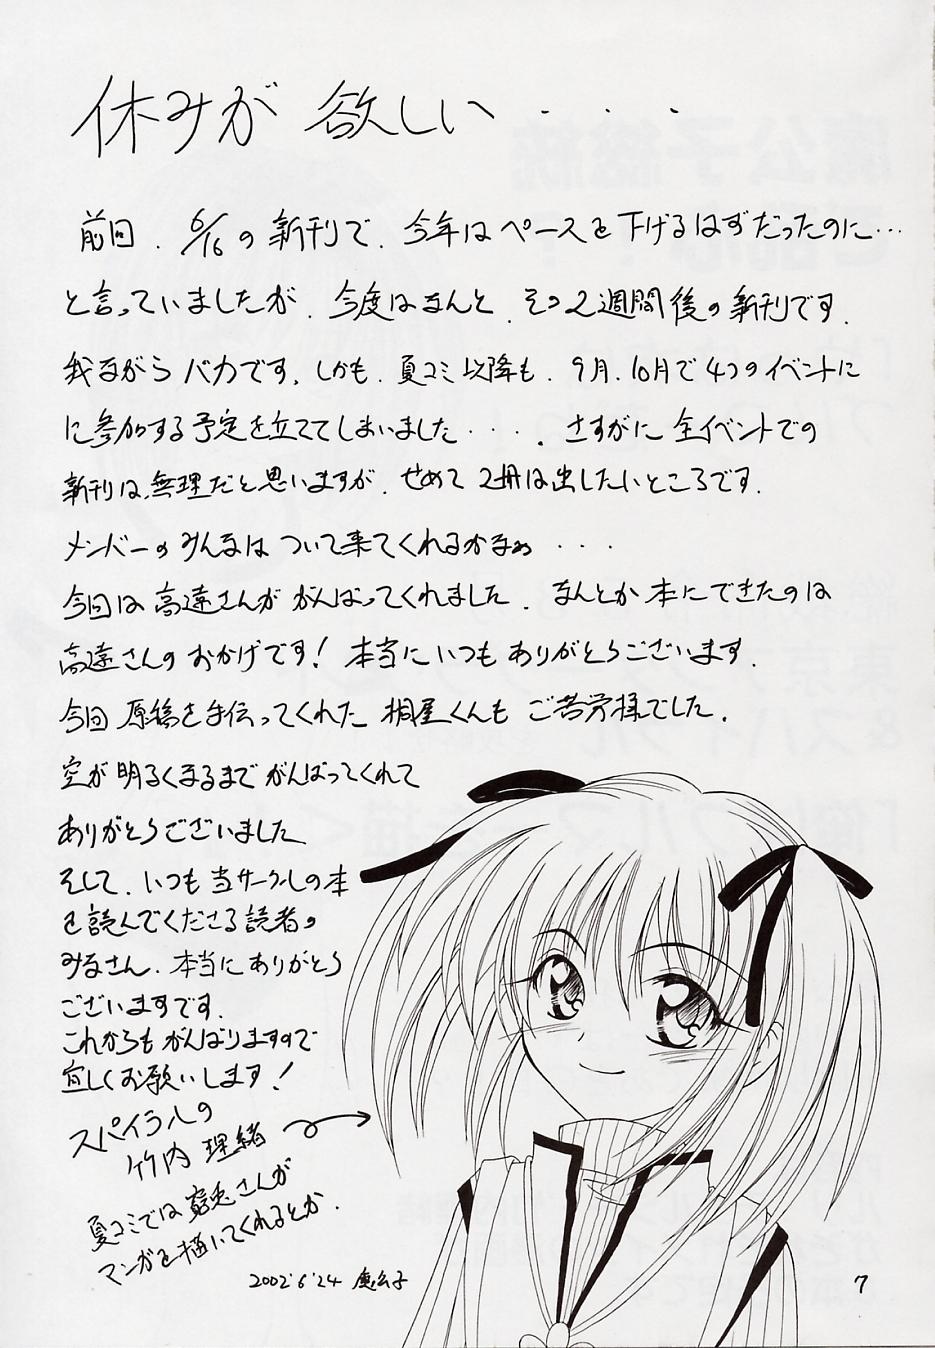 休みが 欲しい・・・
前回、6/16の新刊で、今年はペースを下げるはずだったのに…
と言っていましたが、今度はなんと、その2週間後の新刊です。
我ながらバカです。しかも、夏コミ以降も、9月、10月で4つのイベントに
に参加する予定を立ててしまいました・・・。さすがに全イベントでの
新刊は、無理だと思いますが、せめて2冊は出したいところです。
メンバーのみんなは ついて来てくれるかなぁ・・・
今回は高遠さんががんばってくれました。なんとか本にできたのは
高遠さんのおかげです！本当にいつもありがとうございます。
今回 原稿を手伝ってくれた 桐屋くんも ご苦労様でした。
空が明るくなるまでがんばってくれて
ありがとうございました
そして、いつも当サークルの本
を読んでくださる読者の
みなさん、本当にありがとう
ございますです。
これからもがんばりますので
宜しくお願いします！
スパイラルの
竹内 理緒
夏コミでは 兎さんが
マンガを描いてくれるとか。
2002'6'24 公子
7